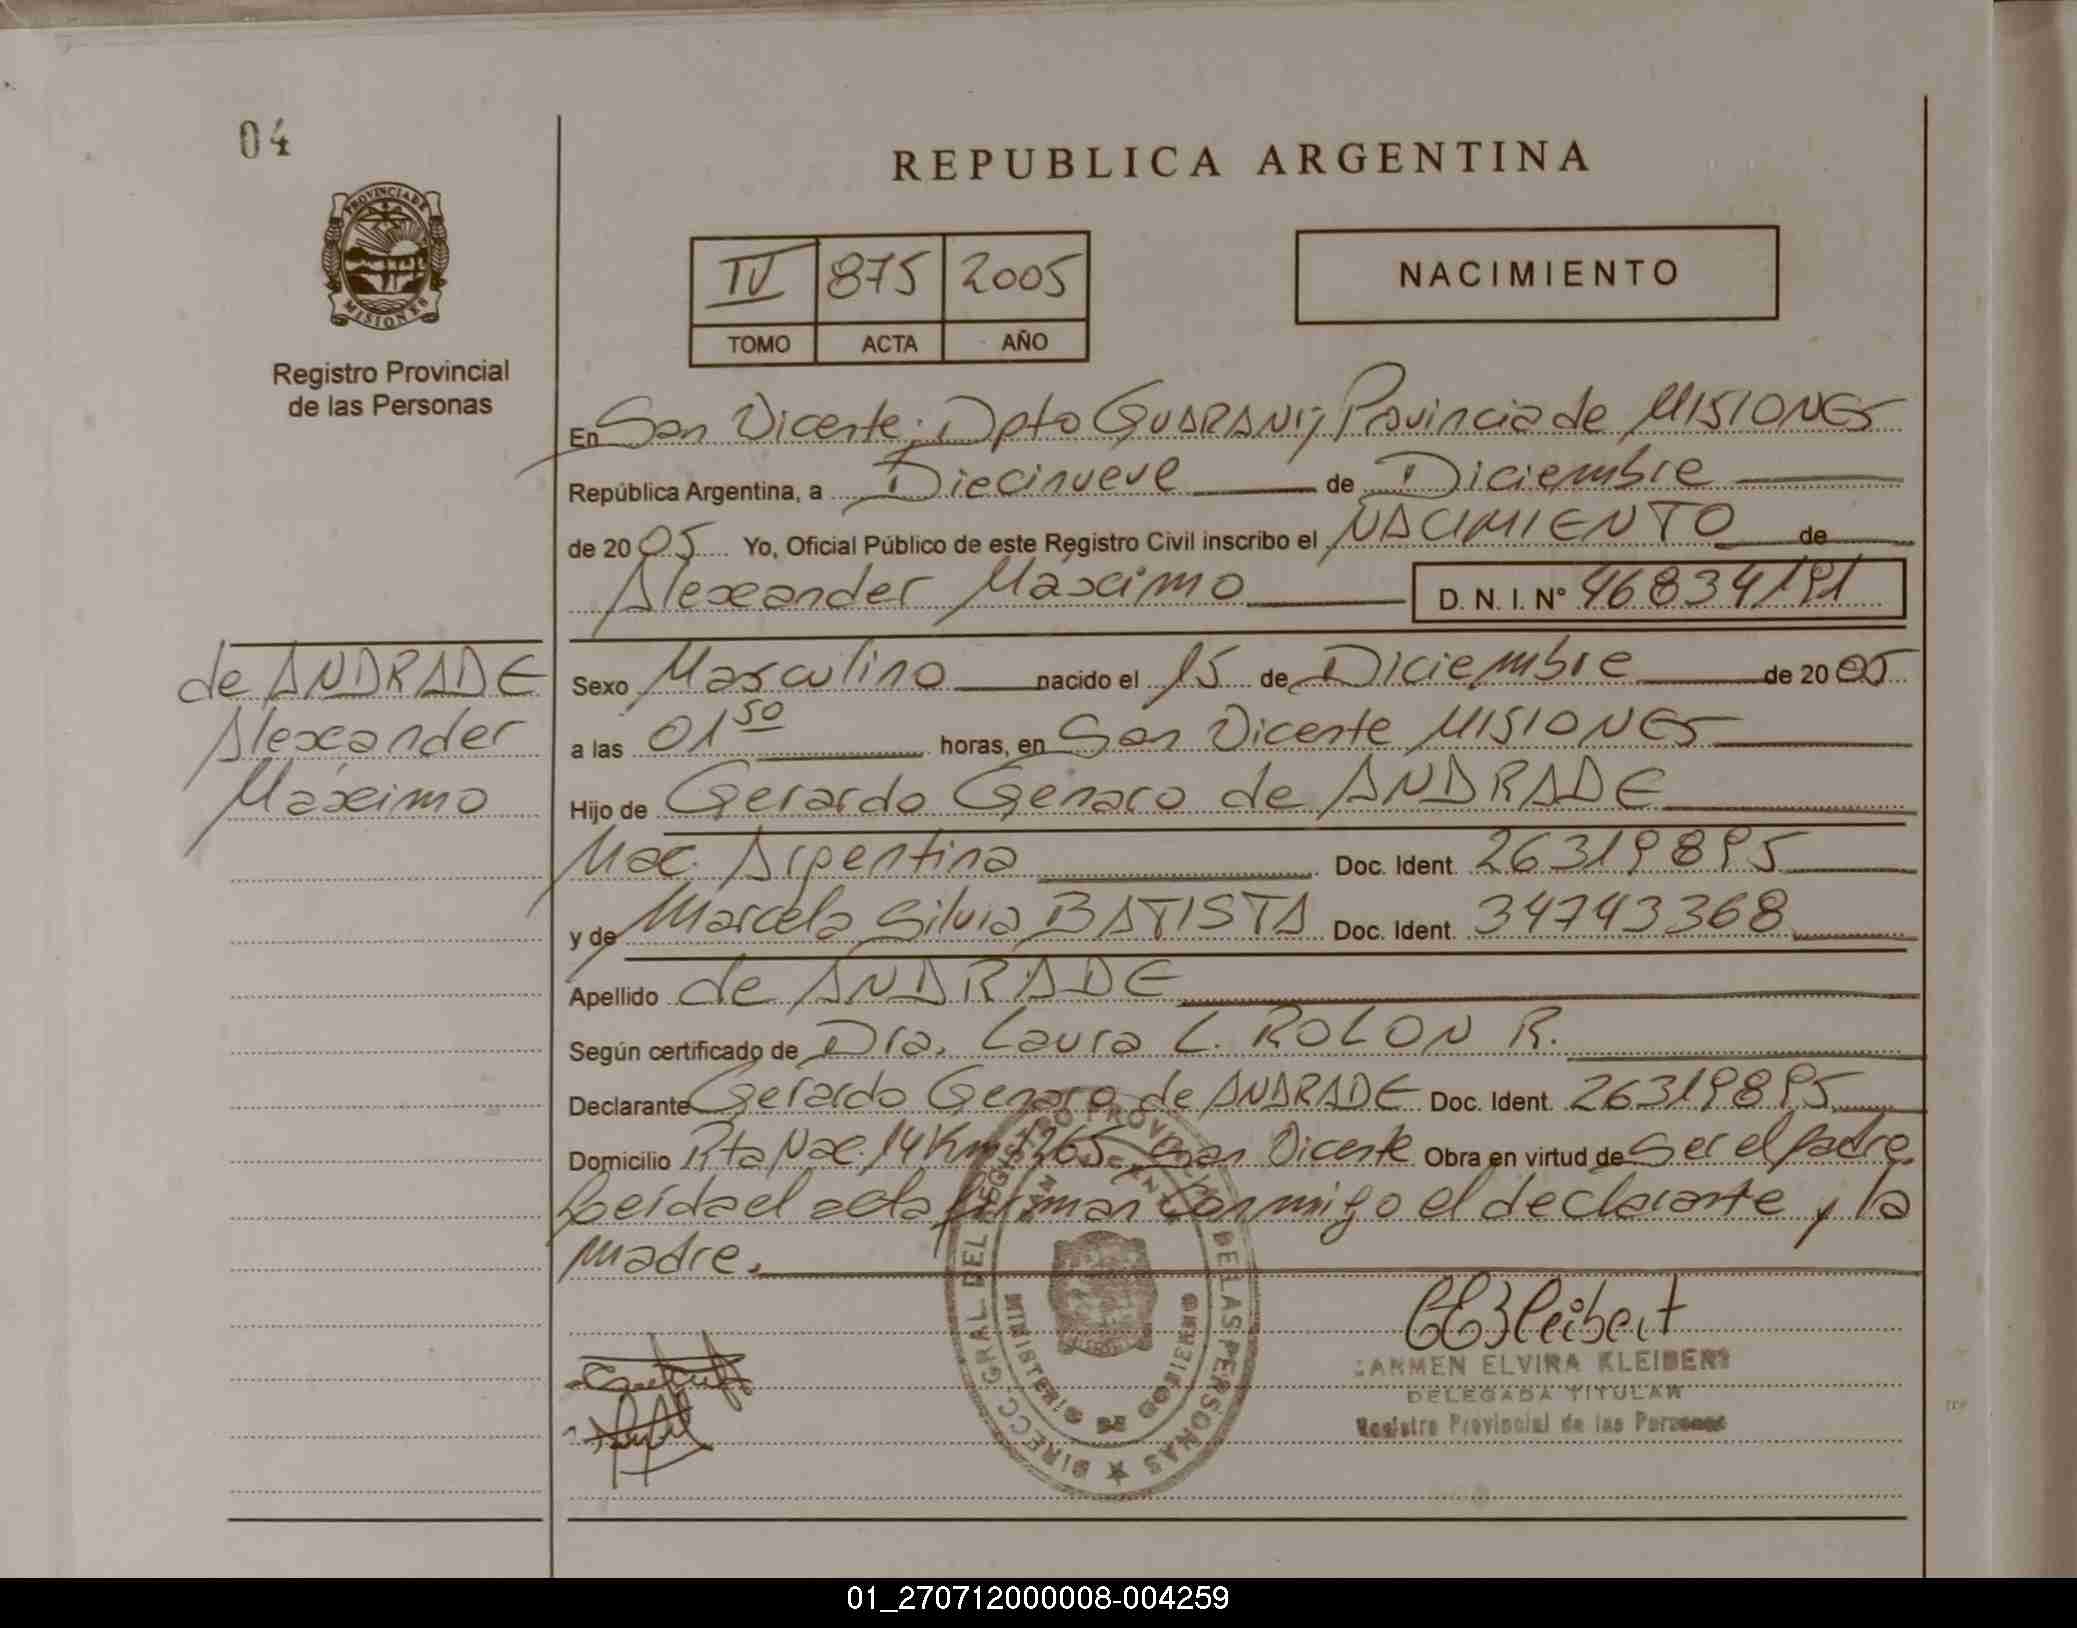 04
PROVINCIA DE
MISIONES
Registro Provincial
de las Personas
REPUBLICA ARGENTINA
IV 875 2005
TOMO ACTA AÑO
NACIMIENTO
En San Vicente, Dpto GUARANI, Provincia de MISIONES
República Argentina, a Diecinueve de Diciembre
de 2005 Yo, Oficial Público de este Registro Civil inscribo el NACIMIENTO de
Alexander Máximo D. N. I. Nº 46834191
de ANDRADE
Alexander
Máximo
Sexo Masculino nacido el 15 de Diciembre de 2005
a las 01 50 horas, en San Vicente MISIONES
Hijo de Gerardo Genaro de ANDRADE
Nac. Argentina Doc. Ident. 26319895
y de Marcela Silvia BATISTA Doc. Ident. 34743368
Apellido de ANDRADE
Según certificado de Dra. Laura L. ROLON R.
Declarante Gerardo Genaro de ANDRADE Doc. Ident. 26319895
Domicilio Rta Nac. 14 Km 1265, San Vicente Obra en virtud de Ser el padre
Leída el acta firman conmigo el declarante y la
madre.
DIRECC. GRAL. DEL REGISTRO PROVINCIAL DE LAS PERSONAS
MINISTERIO DE GOBIERNO
CEKleibert
CARMEN ELVIRA KLEIBERT
DELEGADA TITULAR
Registro Provincial de las Personas
01_270712000008-004259